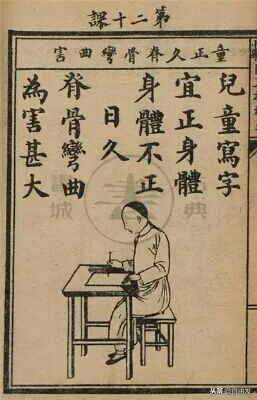 第二十課
童正久脊骨彎曲害
兒童寫字
宜正身體
身體不正
日久
脊骨彎曲
為害甚大
書城